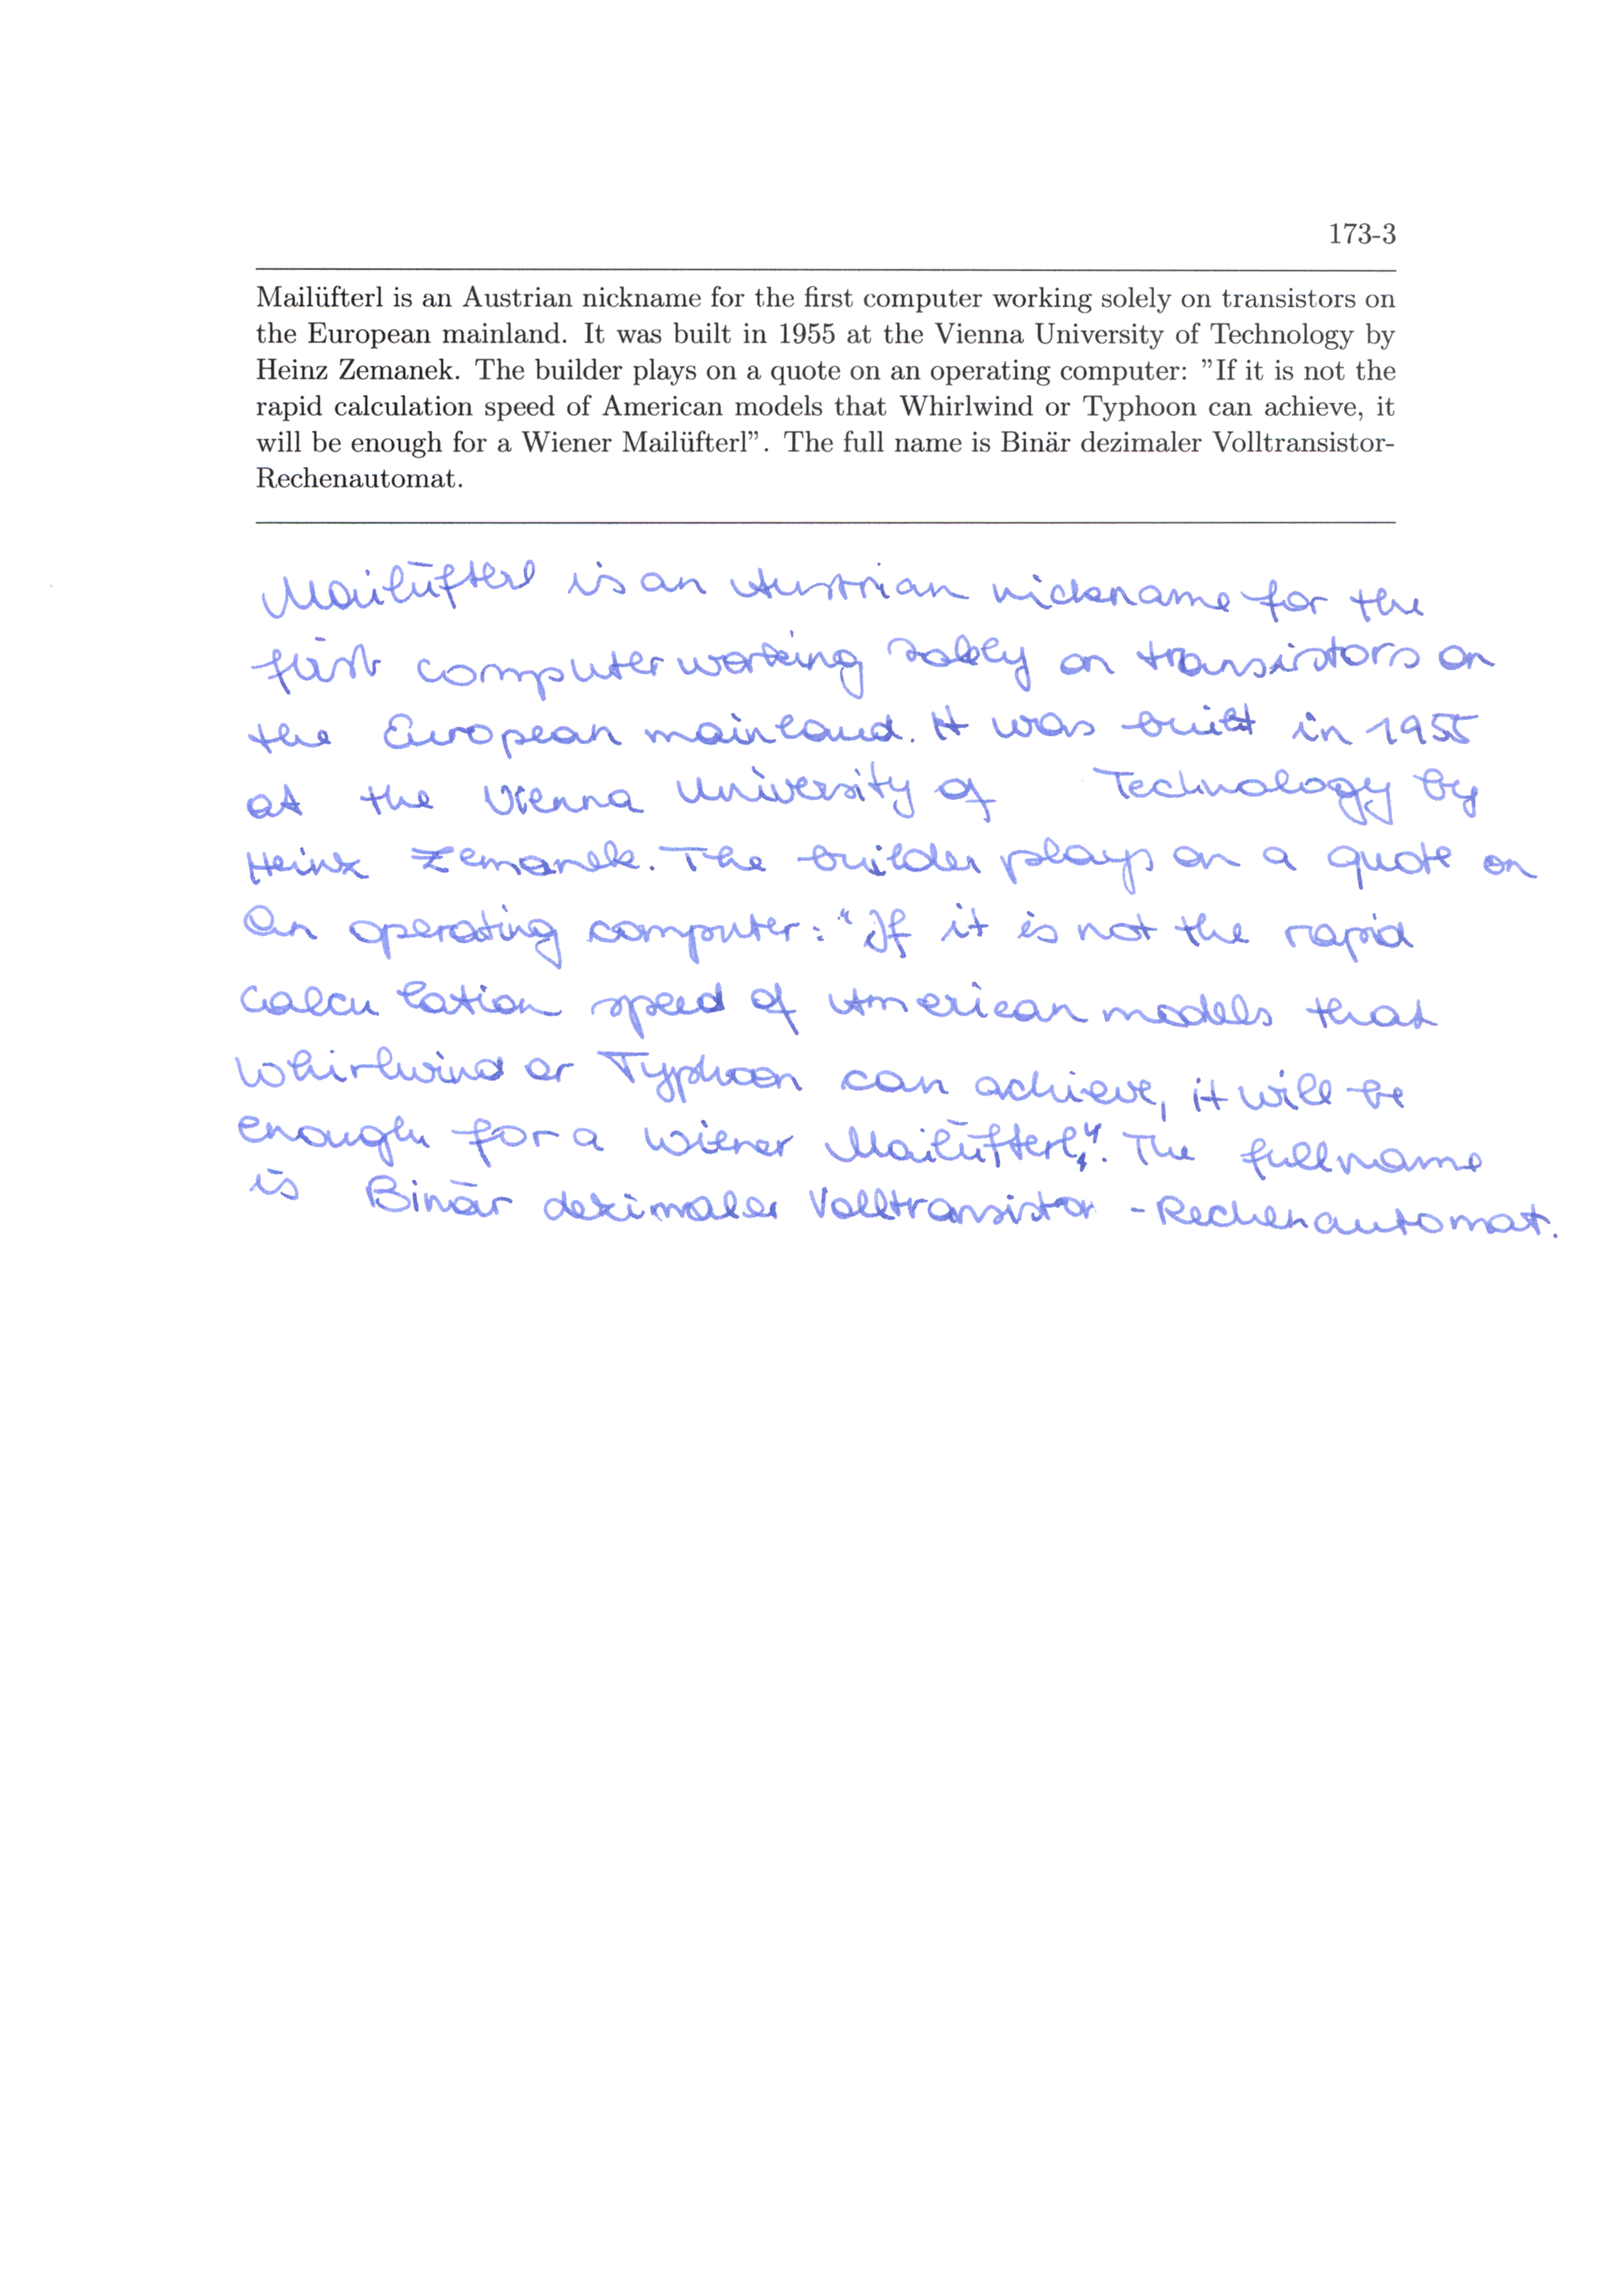 173-3
Mailüfterl is an Austrian nickname for the first computer working solely on transistors on
the European mainland. It was built in 1955 at the Vienna University of Technology by
Heinz Zemanek. The builder plays on a quote on an operating computer: ”If it is not the
rapid calculation speed of American models that Whirlwind or Typhoon can achieve, it
will be enough for a Wiener Mailüfterl”. The full name is Binär dezimaler Volltransistor-
Rechenautomat.
Mailüfterl is an Austrian nickname for the
first computer working solely on transistors on
the European mainland. It was built in 1955
at the Vienna University of Technology by
Heinz Zemanek. The builder plays on a quote on
an operating computer: "If it is not the rapid
calculation speed of American models that
Whirlwind or Typhoon can achieve, it will be
enough for a Wiener Mailüfterl". The full name
is Binär dezimaler Volltransistor-Rechenautomat.